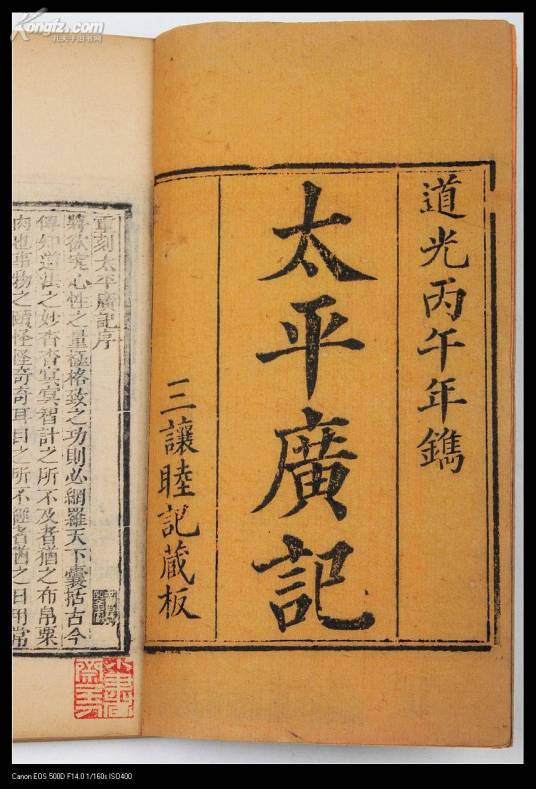 Kongfz.com
孔夫子旧书网
道光丙午年鐫
太平廣記
三讓睦記藏板
重刻太平廣記序
將欲究心性之量極格致之功則必網羅天下囊括古今
俾知道法之妙杳杳冥冥智計之所不及者猶之布帛粟
肉也事物之賾怪怪奇奇耳目之所不經者猶之日用常
Canon EOS 500D F14.0 1/160s ISO400